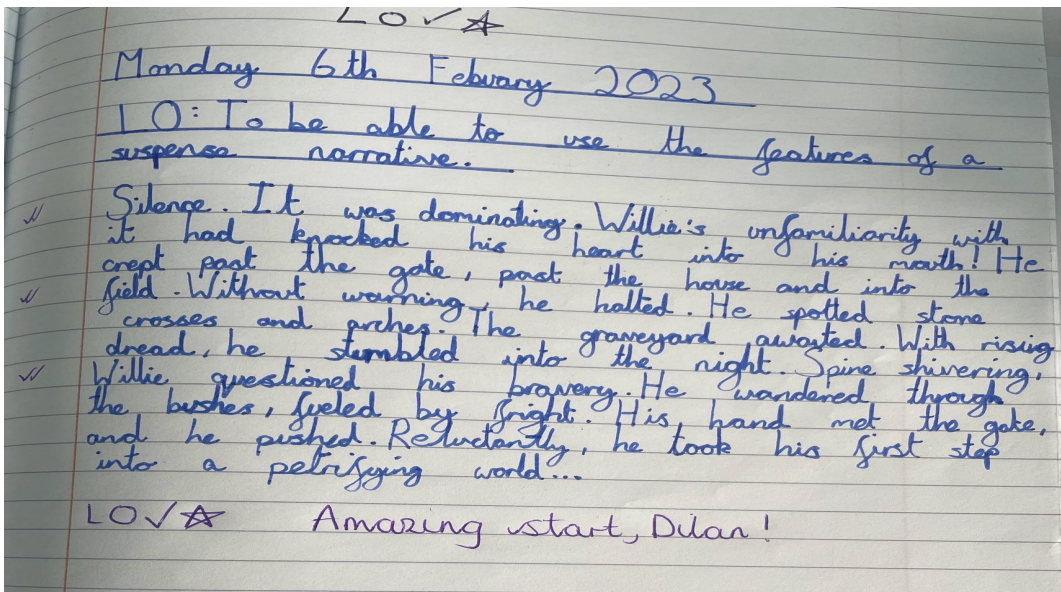 LO✓☆
Monday 6th Febuary 2023
LO: To be able to use the features of a
suspense narrative.
Silence. It was dominating. Willie's unfamiliarity with
it had knocked his heart into his mouth! He
crept past the gate, past the house and into the
field. Without warning, he halted. He spotted stone
crosses and arches. The graveyard awaited. With rising
dread, he stumbled into the night. Spine shivering,
Willie questioned his bravery. He wandered through
the bushes, fueled by fright. His hand met the gate,
and he pushed. Reluctantly, he took his first step
into a petrifying world...
LO✓☆ Amazing start, Dilan!